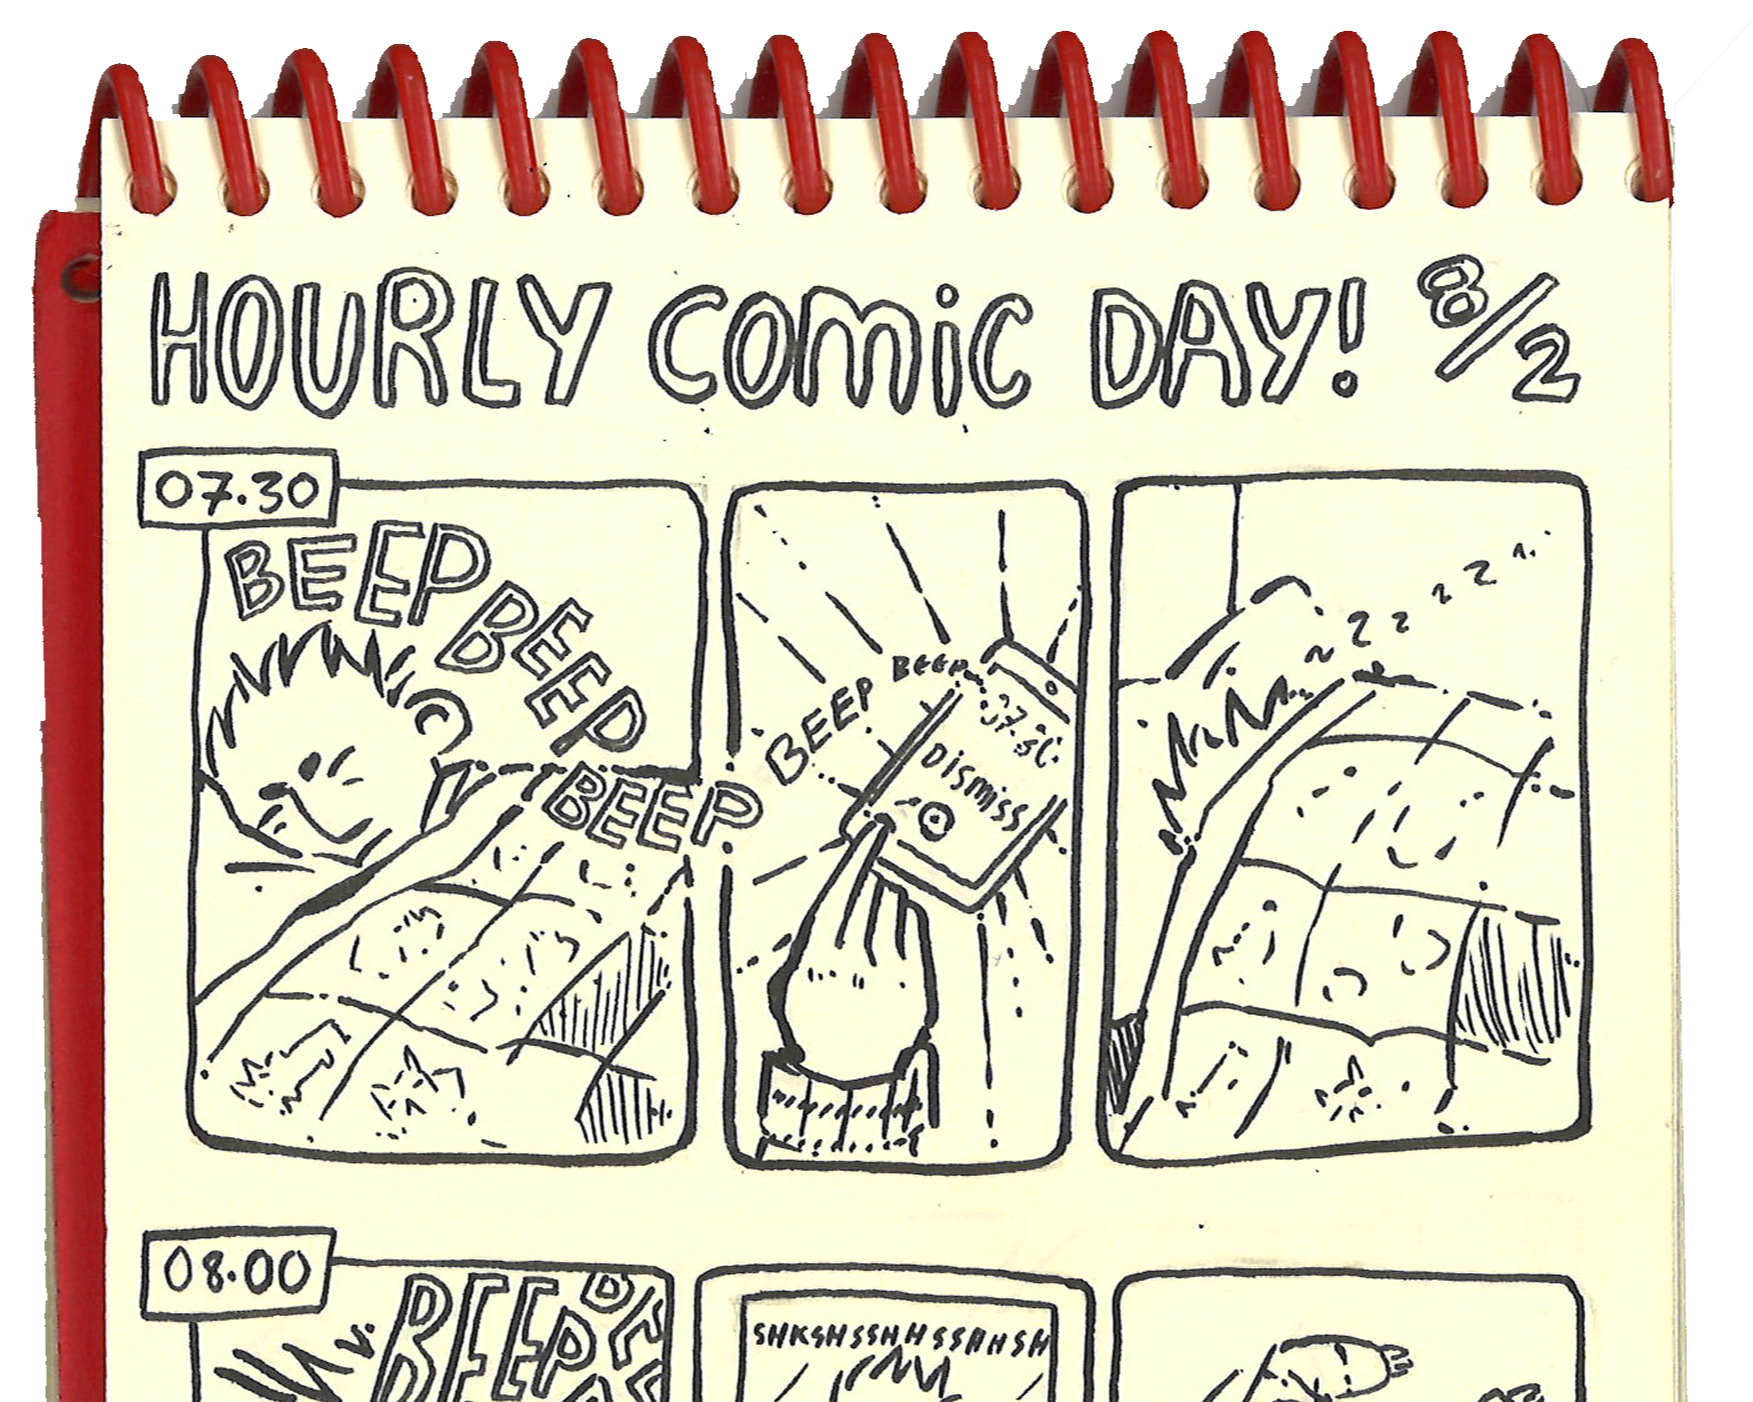 HOURLY COMIC DAY! 8/2
07.30
BEEP BEEP BEEP
BEEP BEEP
07.30
DiSMiSS
z z z z
08.00
BEEP
SHKSHSSHHSSHHSH